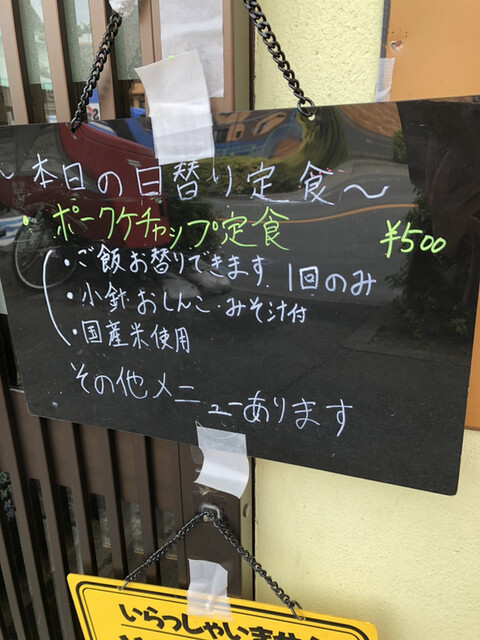 ～本日の日替り定食～
・ポークケチャップ定食 ¥500
・ご飯お替りできます 1回のみ
・小針・おしんこ・みそ汁付
・国産米使用
その他メニューあります
いらっしゃいませ